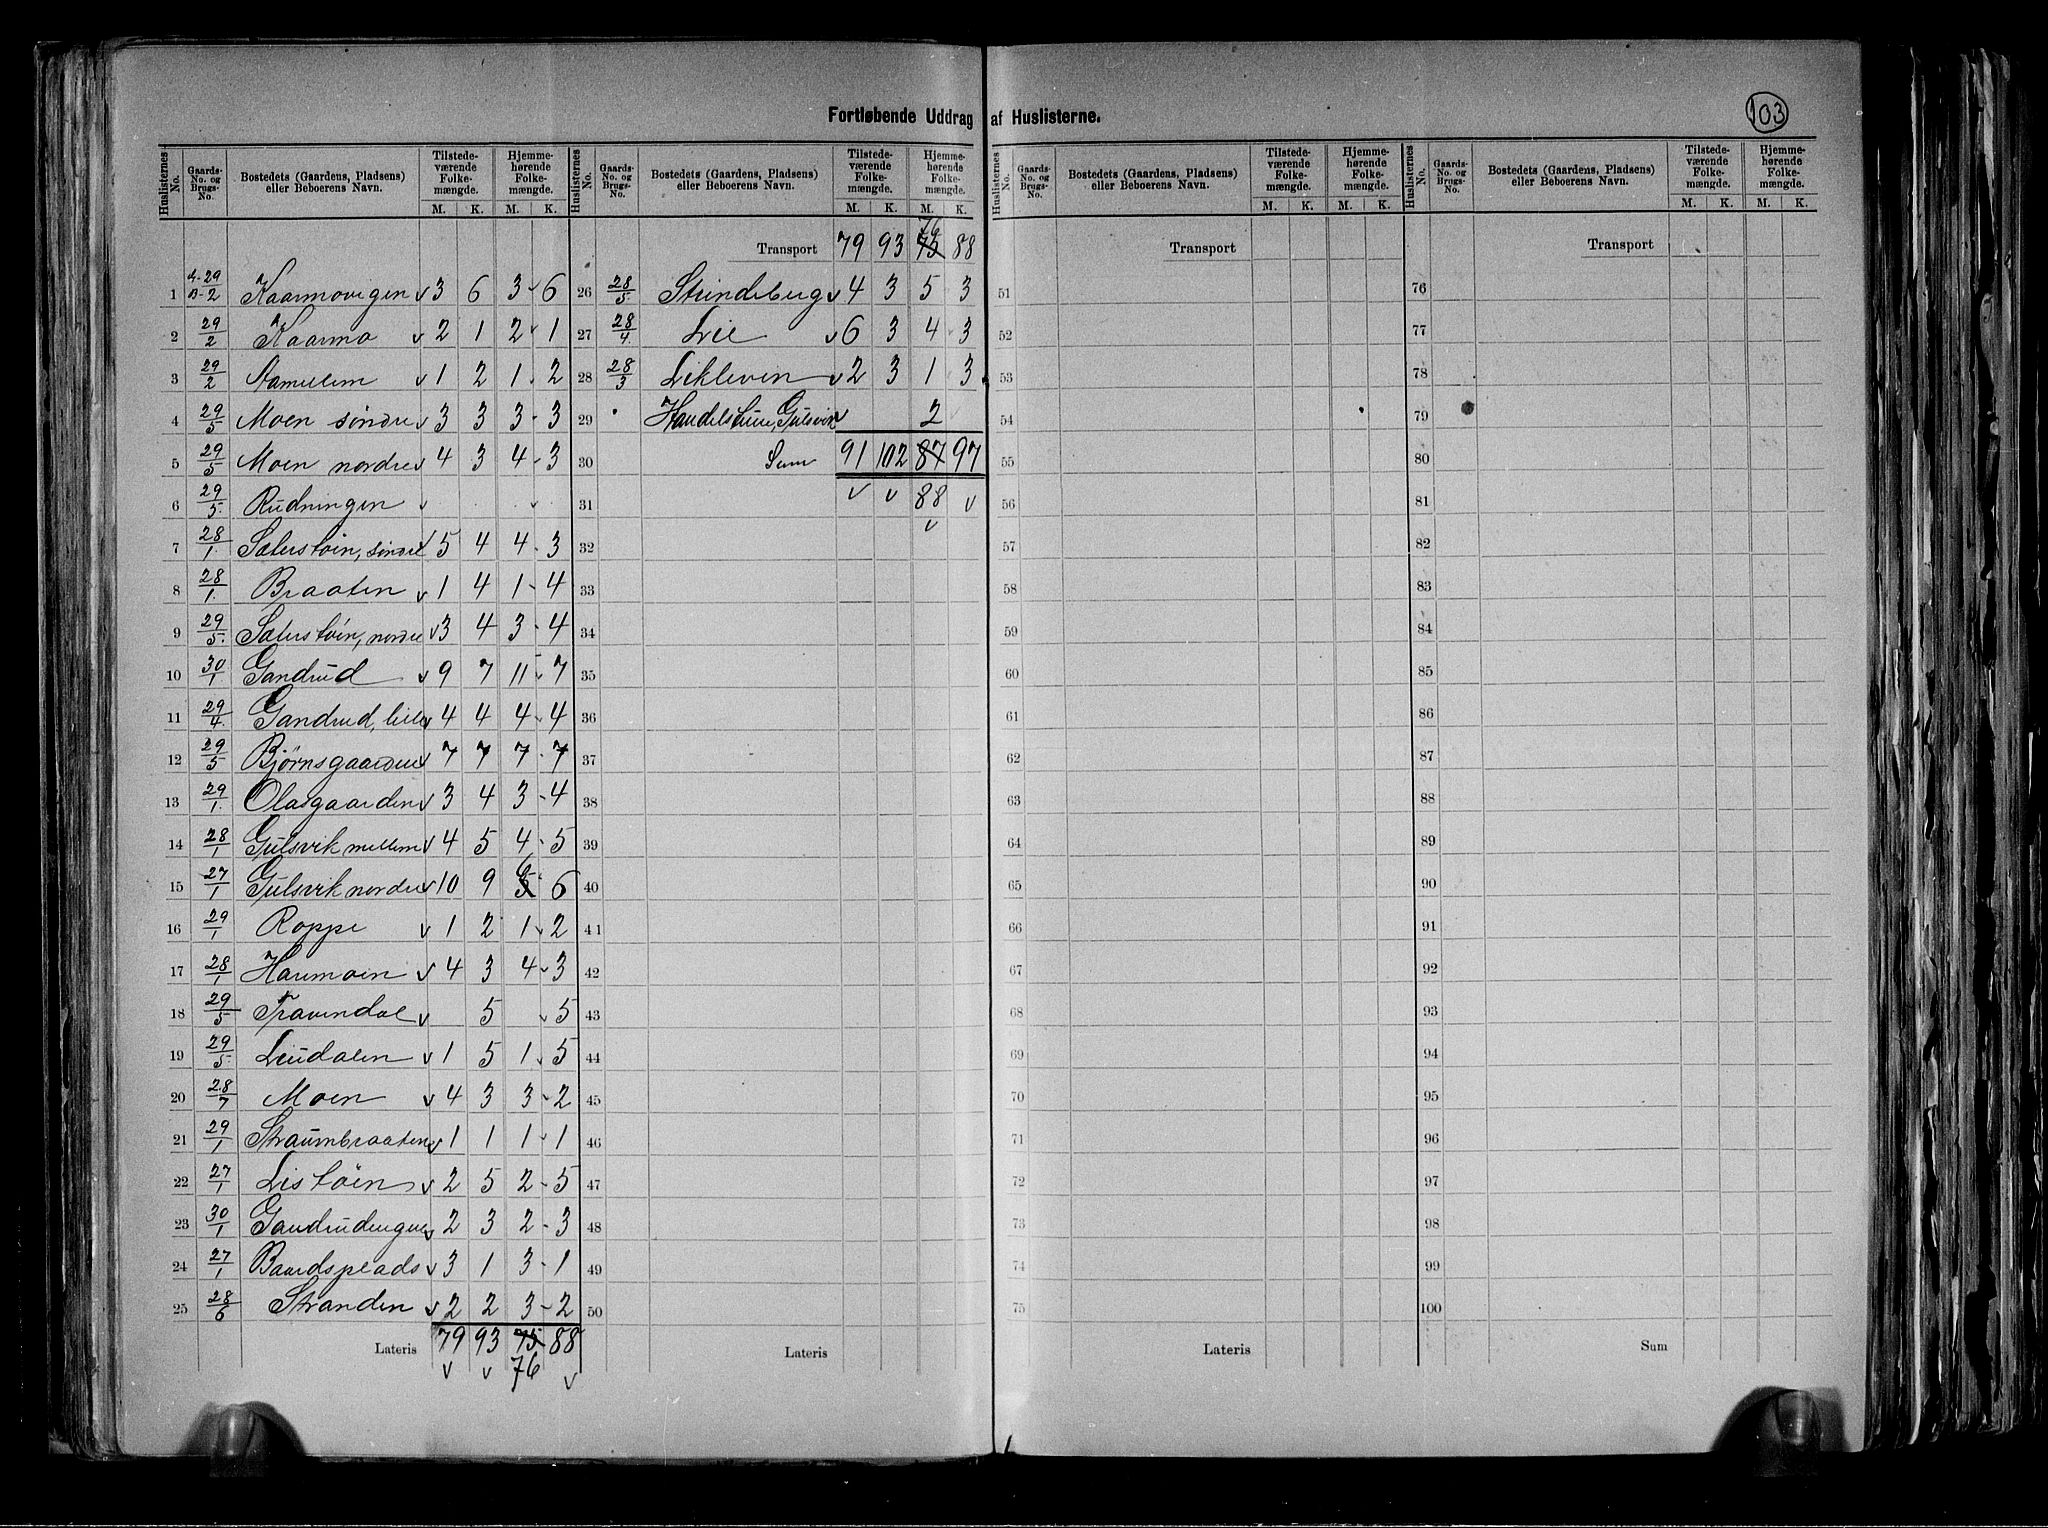 Fortløbende Uddrag af Huslisterne.
103
Huslisternes No. | Gaards-No. og Brugs-No. | Bostedets (Gaardens, Pladsens) eller Beboerens Navn. | Tilstedeværende Folkemængde. M. K. | Hjemmehørende Folkemængde. M. K.
1 G-29 B-2 Kaarmovigen v 3 6 3 6
2 29/2 Kaarmo v 2 1 2 1
3 29/2 v 1 2 1 2
4 29/5 Moen søndre 3 3 3 3
5 29/5 Moen nordre v 4 3 4 3
6 29/5 Rudningen v
7 28/1 Sæterstøin, søndre 5 4 4 3
8 28/1 Braaten v 1 4 1 4
9 29/5 Sæterstøin, nordre v 3 4 3 4
10 30/1 Gandrud v 9 7 11 7
11 29/4 Gandrud, lille v 4 4 4 4
12 29/5 Bjørnsgaarden v 7 7 7 7
13 29/1 Olasgaarden v 3 4 3 4
14 28/1 Gulsvik mellem v 4 5 4 5
15 27/1 Gulsvik nordre v 10 9 5 6 6
16 29/1 Roppe v 1 2 1 2
17 28/1 Haumoen v 4 3 4 3
18 29/5 Travendal v 5 5
19 29/5 Liudalen v 1 5 1 5
20 28/7 Moen v 4 3 3 2
21 29/1 Straumbraaten v 1 1 1 1
22 27/1 Listøin v 2 5 2 5
23 30/1 Gandrudengen 2 3 2 3
24 27/1 Baardsplads v 3 1 3 1
25 28/6 Stranden v 2 2 3 2
Lateris 79 93 75 88
v v 76 v
Huslisternes No. | Gaards-No. og Brugs-No. | Bostedets (Gaardens, Pladsens) eller Beboerens Navn. | Tilstedeværende Folkemængde. M. K. | Hjemmehørende Folkemængde. M. K.
76
Transport 79 93 75 88
26 28/5 Strindeberg v 4 3 5 3
27 28/4 Lie v 6 3 4 3
28 28/3 Likleven v 2 3 1 3
29 Gulsvik v 2
30 Sum 91 102 87 97
31 v v 88 v
v
32
33
34
35
36
37
38
39
40
41
42
43
44
45
46
47
48
49
50
Lateris
Huslisternes No. | Gaards-No. og Brugs-No. | Bostedets (Gaardens, Pladsens) eller Beboerens Navn. | Tilstedeværende Folkemængde. M. K. | Hjemmehørende Folkemængde. M. K.
Transport
51
52
53
54
55
56
57
58
59
60
61
62
63
64
65
66
67
68
69
70
71
72
73
74
75
Lateris
Huslisternes No. | Gaards-No. og Brugs-No. | Bostedets (Gaardens, Pladsens) eller Beboerens Navn. | Tilstedeværende Folkemængde. M. K. | Hjemmehørende Folkemængde. M. K.
Transport
76
77
78
79
80
81
82
83
84
85
86
87
88
89
90
91
92
93
94
95
96
97
98
99
100
Sum